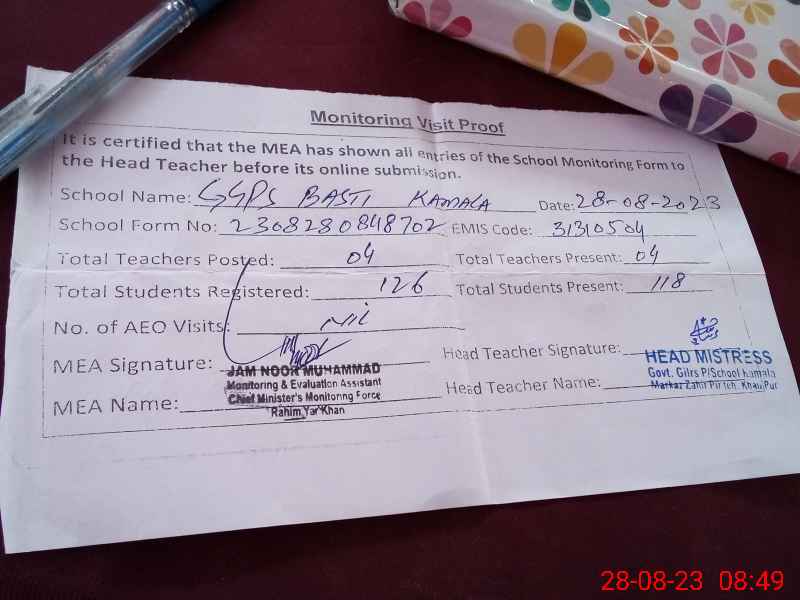 Monitoring Visit Proof
It is certified that the MEA has shown all entries of the School Monitoring Form to
the Head Teacher before its online submission.
School Name: GGPS BASTI KAMALA Date: 28-08-2023
School Form No: 2308280848702 EMIS Code: 31310504
Total Teachers Posted: 04 Total Teachers Present: 04
Total Students Registered: 126 Total Students Present: 118
No. of AEO Visits: Nil
MEA Signature: Head Teacher Signature:
JAM NOOR MUHAMMAD
Monitoring & Evaluation Assistant
Chief Minister's Monitoring Force
Rahim Yar Khan
HEAD MISTRESS
Govt. Gilrs P/School Kamala
Markaz Zahir Pir Teh. Khan Pur
MEA Name: Head Teacher Name:
28-08-23 08:49